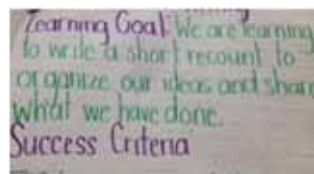 Learning Goal: We are learning
to write a short recount to
organize our ideas and share
what we have done.
Success Criteria